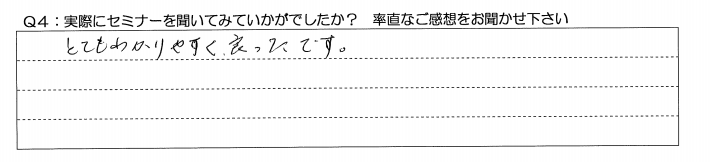 Q4：実際にセミナーを聞いてみていかがでしたか？　率直なご感想をお聞かせ下さい
とてもわかりやすく良ったです。